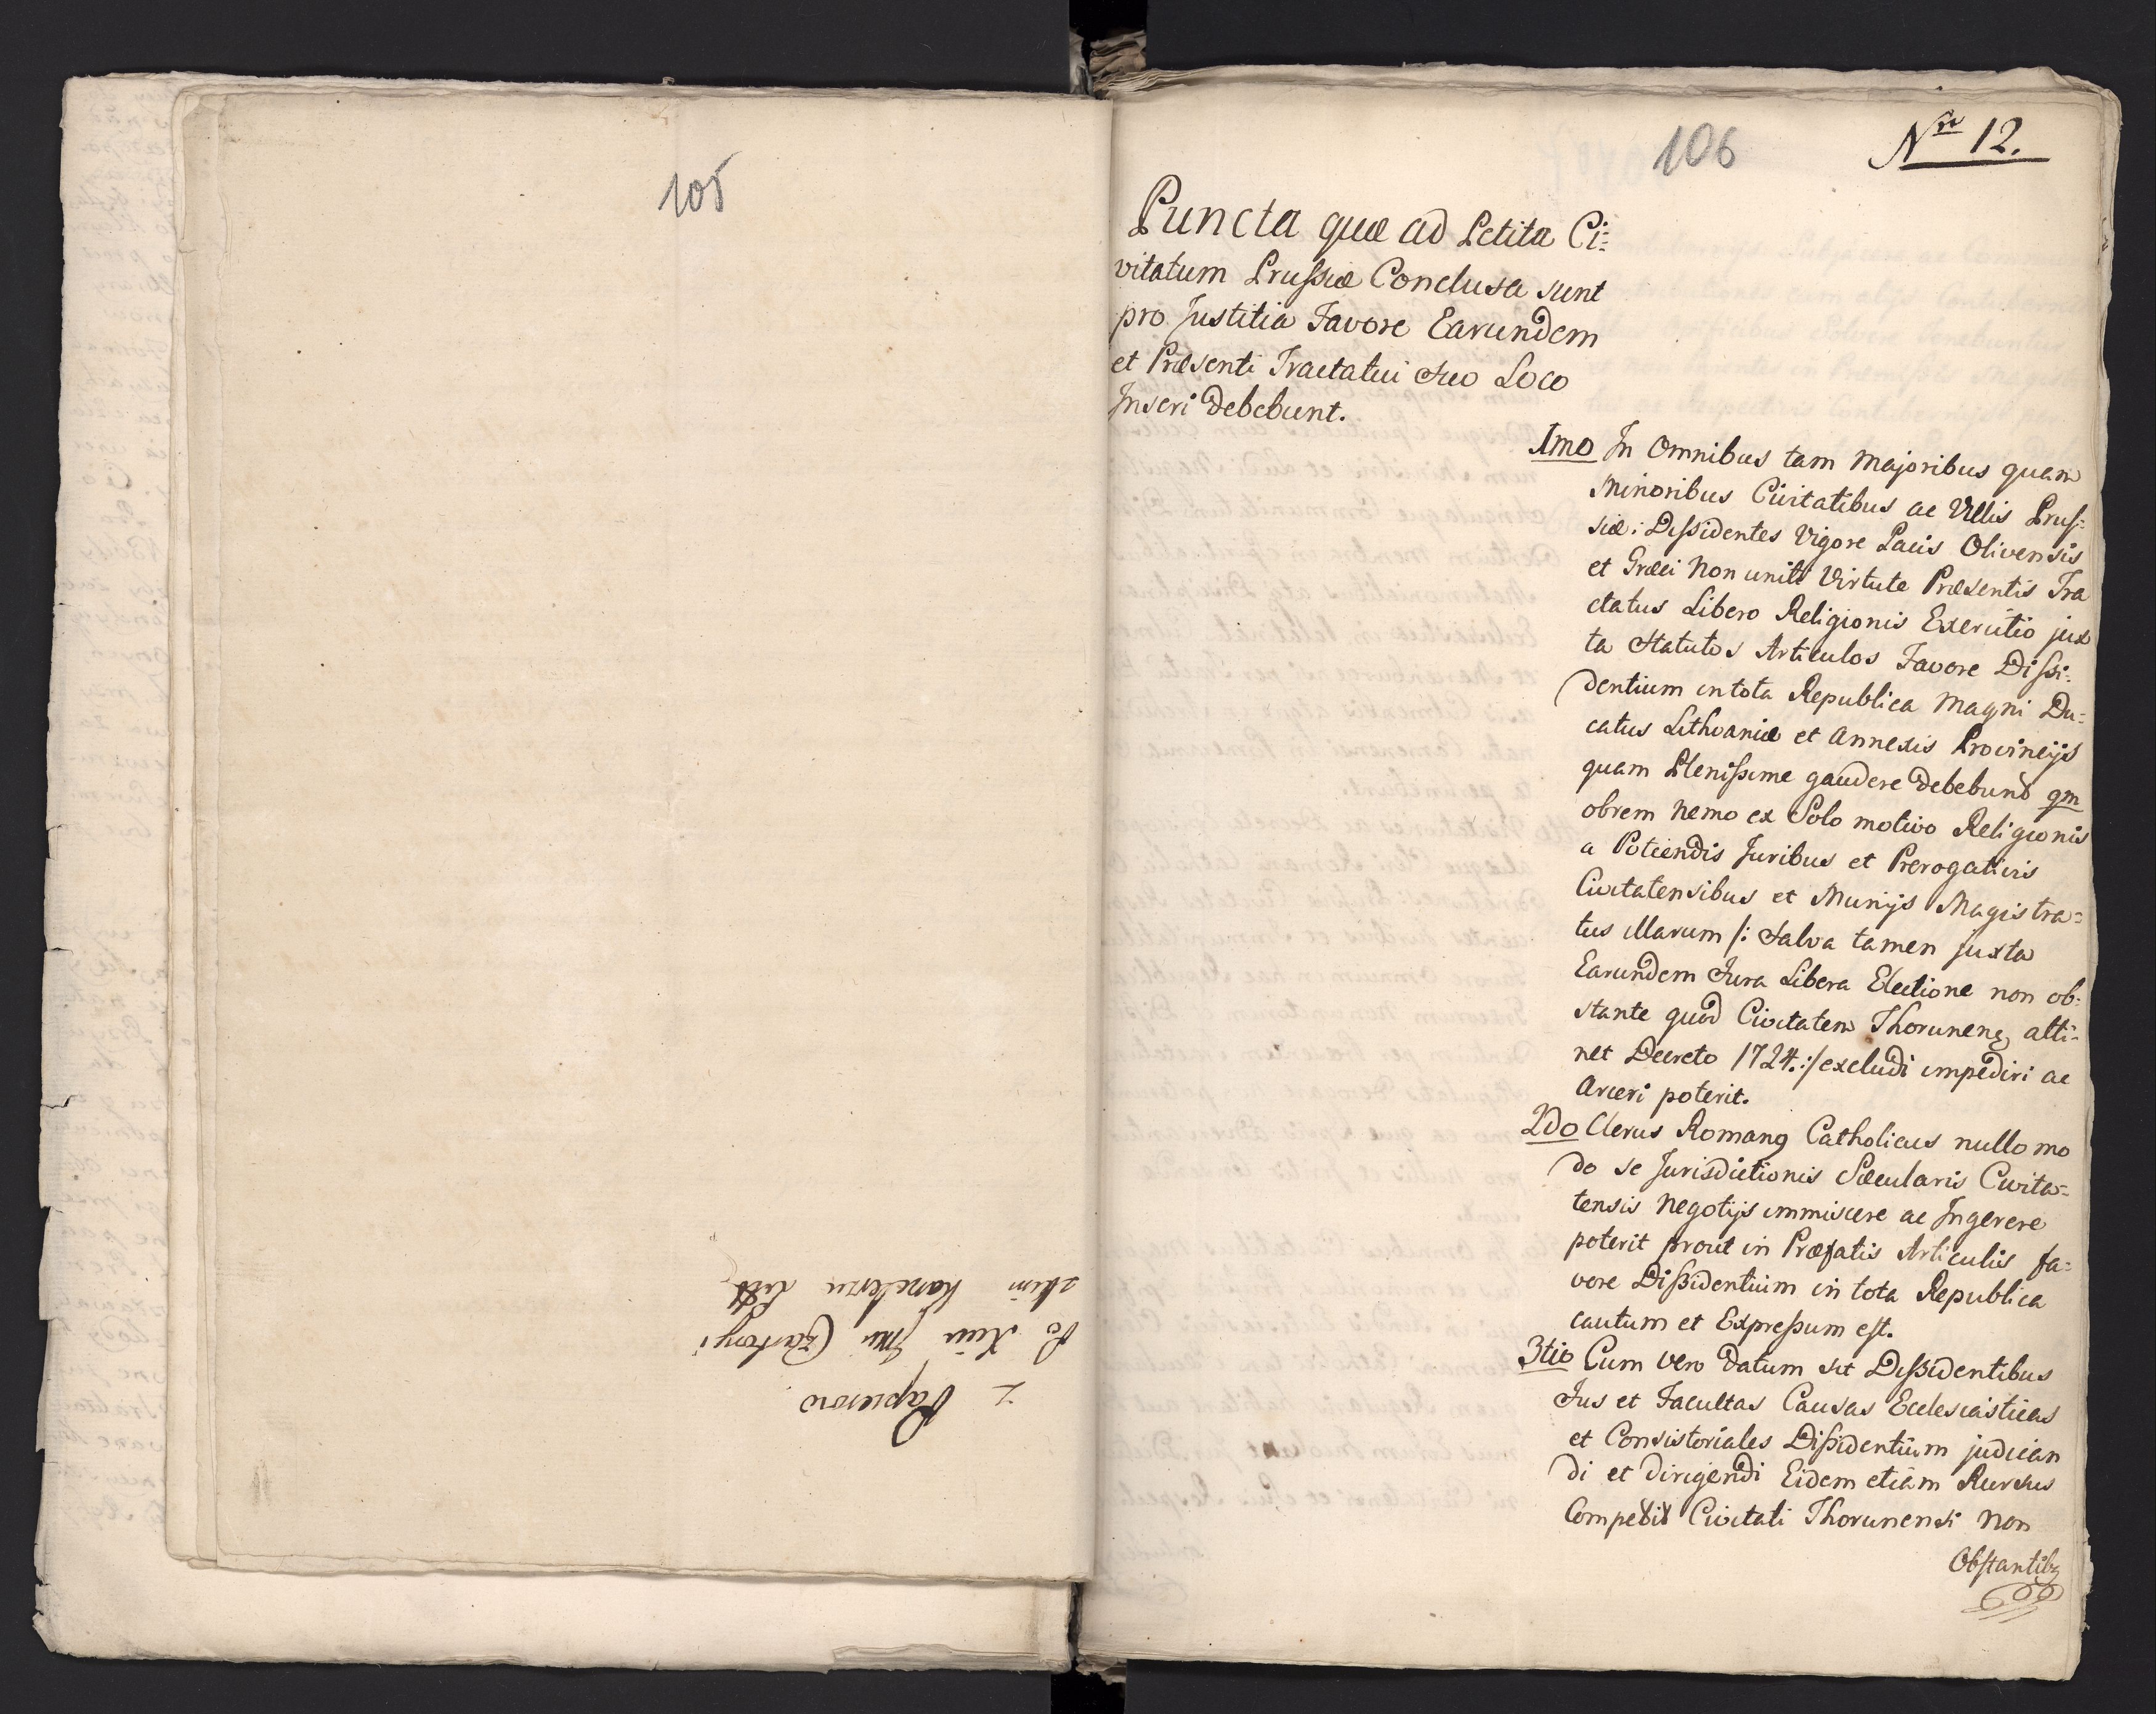 105
z Papierow
Po Xciu Jmci Czartorys
skim Kanclerzu Litt
106
Nro 12.
Puncta quæ ad Petita Ci:
vitatum Prussiæ Conclusa sunt
pro Justitia Favore Earundem
et Præsenti Tractatui Suo Loco
Inseri debebunt.
Imo In Omnibus tam Majoribus quam
Minoribus Civitatibus ac Villis Prus:
siæ: Dissidentes Vigore Pacis Olivensis
et Græci Non uniti Virtute Præsentis Tra
ctatus Libero Religionis Exercitio jux
ta Statutos Articulos Favore Dissi:
dentium in tota Republica Magni Du:
catus Lithvaniæ et Annexis Provincijs
quam Plenissime gaudere debebunt qm
obrem Nemo ex Solo motivo Religionis
a Potiendis Juribus et Prerogativis
Civitatensibus et Munijs Magistra:
tus illarum /: Salva tamen juxta
Earundem Jura Libera Electione non ob:
stante quod Civitatem Thorunens atti:
net Decreto 1724.:/ excludi impediri ac
Arceri poterit.
2do Clerus Romang Catholicus nullo mo
do se Jurisdictionis Sæcularis Civita:
tensis Negotijs immiscere ac Ingerere
poterit prout in Præfatis Articulis fa:
vore Dissidentium in tota Republica
cautum et Expressum est.
3tio Cum vero datum sit Dissidentibus
Jus et Facultas Causas Ecclesiasticas
et Consistoriales Dissidentium judican
di et dirigendi Eidem etiam Rursus
Competit Civitati Thorunensi Non
Obstantibq